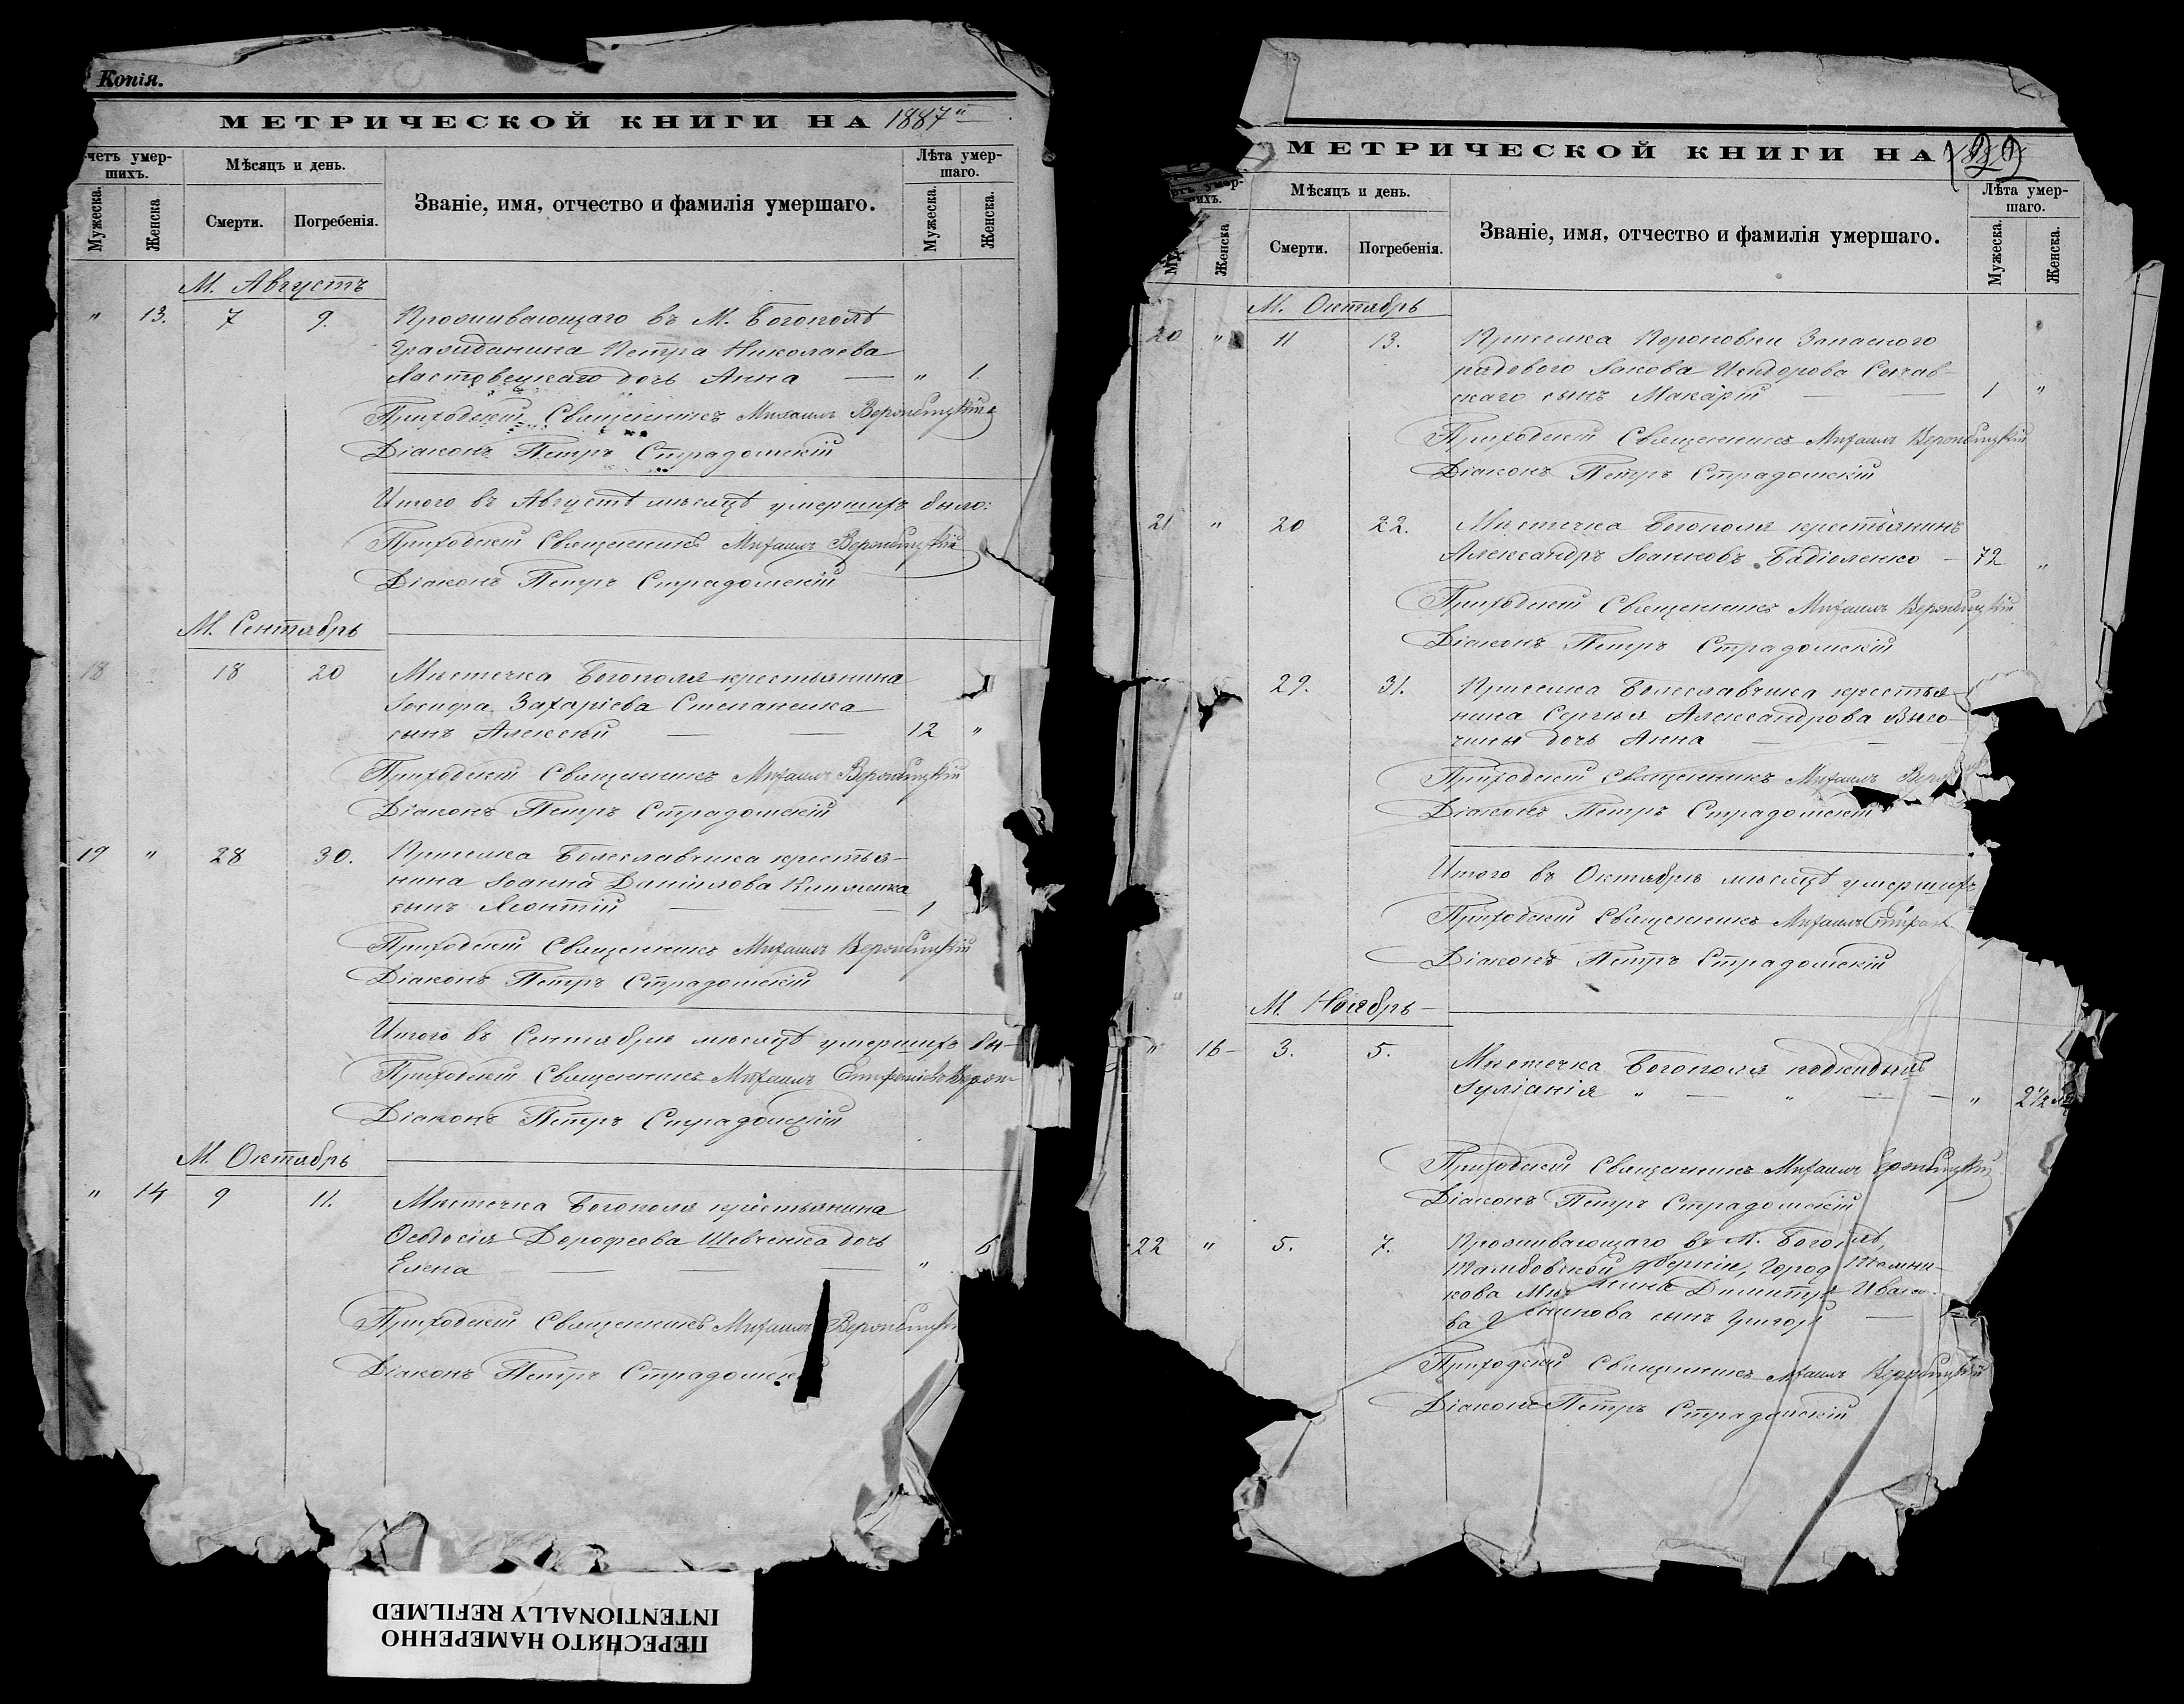 Копія.
МЕТРИЧЕСКОЙ КНИГИ НА 1887
четъ умер-
шихъ.
Мѣсяцъ и день.
Званіе, имя, отчество и фамилія умершаго.
Лѣта умер-
шаго.
Мужеска.
Женска
Смерти.
Погребенія.
Мужеска.
Женска.
М. Августъ
" 13. 7 9. Проживающаго въ М. Богополѣ
Гражданина Петра Николаева
Ластовецкаго дочь Анна — " 1.
Приходскій Священникъ Михаилъ Вержбицкій
Діаконъ Петръ Страдомскій
Итого въ Августѣ мѣсяцѣ умершихъ было:
Приходскій Священникъ Михаилъ Вержбицкій
Діаконъ Петръ Страдомскій
М. Сентябрь
18 18 20 Мѣстечка Богополя крестьянина
Іосифа Захаріева Степаненка
сынъ Алексѣй — — 12 "
Приходскій Священникъ Михаилъ Вержбицкій
Діаконъ Петръ Страдомскій
19 " 28 30. Приселка Болеславчика крестья-
нина Іоанна Даніилова
сынъ Леонтій — — — 1
Приходскій Священникъ Михаилъ Вержбицкій
Діаконъ Петръ Страдомскій
Итого въ Сентябрѣ мѣсяцѣ умершихъ бы-
Приходскій Священникъ Михаилъ
Діаконъ Петръ Страдомскій
М. Октябрь
" 14 9 11. Мѣстечка Богополя крестьянина
Ѳеодосія Дорофеева Шевченка дочь
Елена — — — "
Приходскій Священникъ Михаилъ Вержбицкі
Діаконъ Петръ Страдомск
ПЕРЕСНЯТО НАМЕРЕННО
INTENTIONALLY REFILMED
МЕТРИЧЕСКОЙ КНИГИ НА
умер-
ихъ.
Мѣсяцъ и день.
Званіе, имя, отчество и фамилія умершаго.
Лѣта умер-
шаго.
Женска
Смерти.
Погребенія.
Мужеска.
Женска.
М. Октябрь
20 " 11 13. Приселка Запаснаго
рядового Іакова Исидорова
скаго сынъ Макарій — — 1 "
Приходскій Священникъ Михаилъ Вержбицкій
Діаконъ Петръ Страдомскій
21 " 20 22. Мѣстечка Богополя крестьянинъ
Александръ Іоанновъ — 72 "
Приходскій Священникъ Михаилъ Вержбицкій
Діаконъ Петръ Страдомскій
29. 31. Приселка Болеславчика крестья-
нина Сергѣя Александрова Высо-
чины дочь Анна — —
Приходскій Священникъ Михаилъ
Діаконъ Петръ Страдомскій
Итого въ Октябрѣ мѣсяцѣ умершихъ
Приходскій Священникъ Михаилъ
Діаконъ Петръ Страдомскій
М. Ноябрь
" 16 3. 5. Мѣстечка Богополя подкидышъ
Іуліанія " — " — — " 2½
Приходскій Священникъ Михаилъ Вержбицкій
Діаконъ Петръ Страдомскій
22 " 5. 7. Проживающаго въ М. Богополѣ,
Тамбовской Губерніи, Город Темни-
кова Димитрія
сынъ Григорі —
Приходскій Священникъ Михаилъ Вержбицкій
Діаконъ Петръ Страдомскій